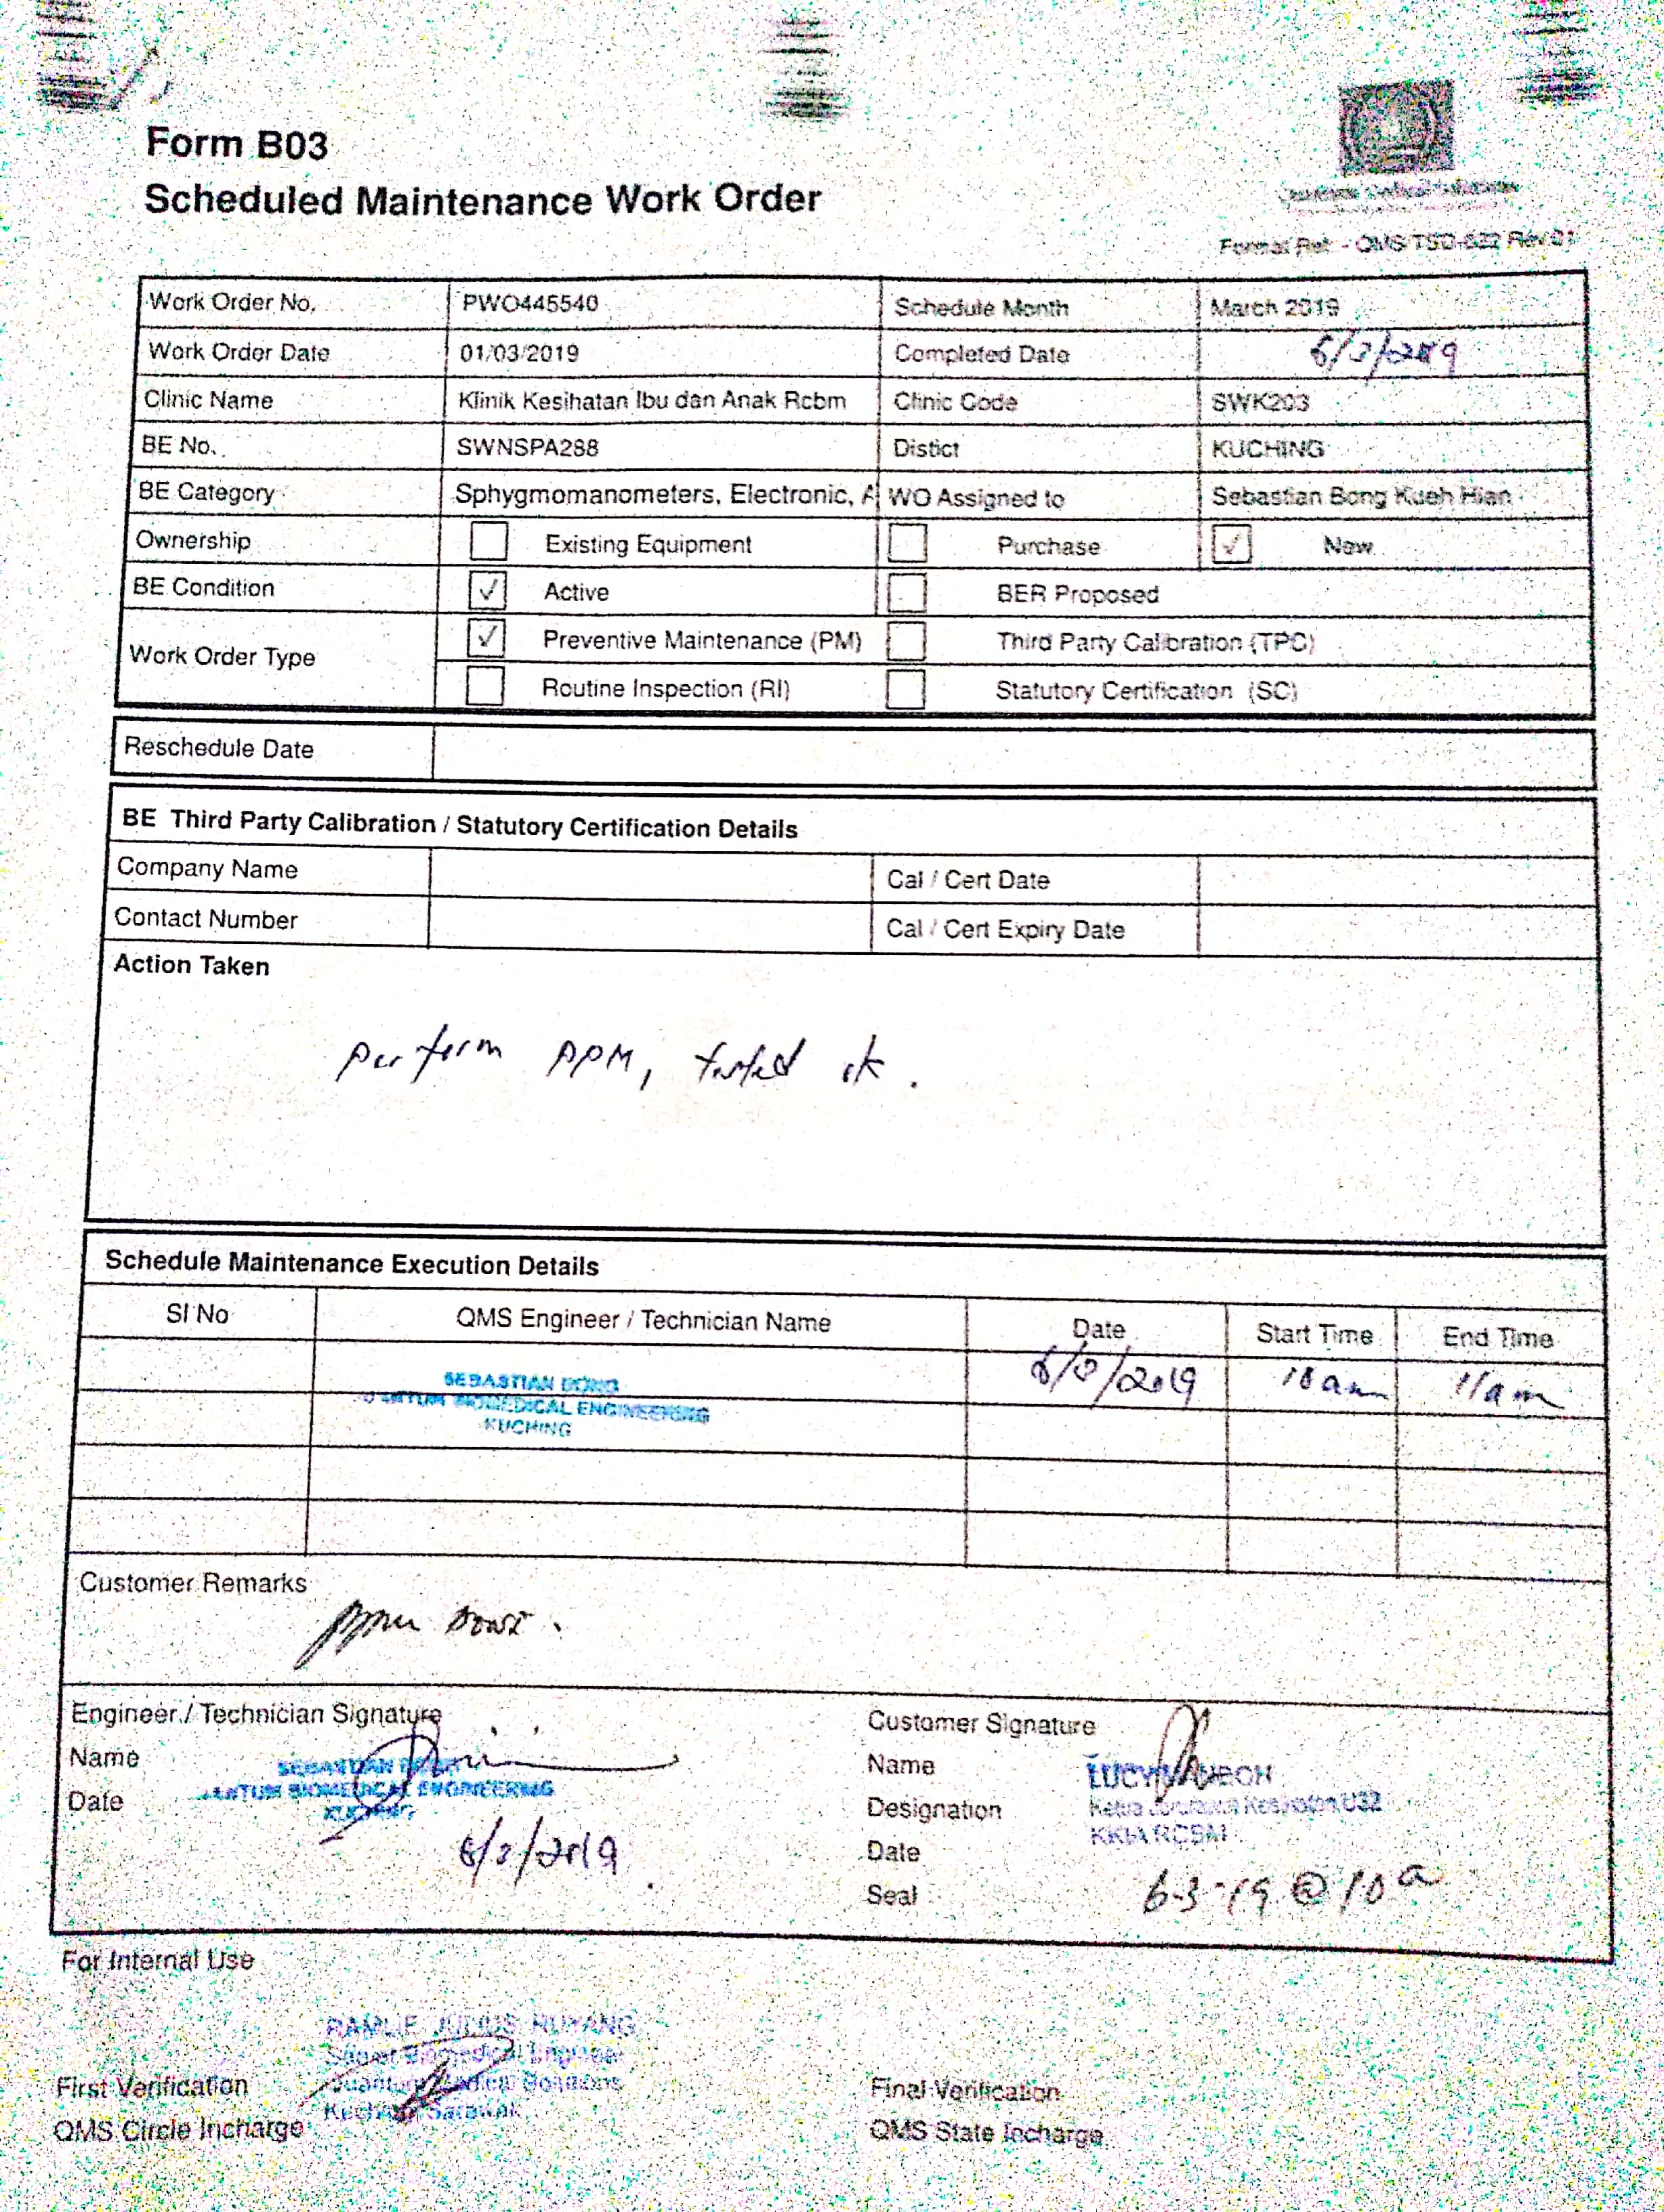 Form B03
Scheduled Maintenance Work Order
Format Ref - QMS/TSD-622 Rev 01
Work Order No. PWO445540 Schedule Month March 2019
Work Order Date 01/03/2019 Completed Date 6/3/2019
Clinic Name Klinik Kesihatan Ibu dan Anak Rcbm Clinic Code SWK203
BE No. SWNSPA288 Distict KUCHING
BE Category Sphygmomanometers, Electronic, A WO Assigned to Sebastian Bong Kueh Hian
Ownership Existing Equipment Purchase ✓ New
BE Condition ✓ Active BER Proposed
Work Order Type ✓ Preventive Maintenance (PM) Third Party Calibration (TPC)
Routine Inspection (RI) Statutory Certification (SC)
Reschedule Date
BE Third Party Calibration / Statutory Certification Details
Company Name Cal / Cert Date
Contact Number Cal / Cert Expiry Date
Action Taken
Perform PPM, tested ok.
Schedule Maintenance Execution Details
Sl No QMS Engineer / Technician Name Date Start Time End Time
SEBASTIAN BONG 6/3/2019 10am 11am
BIOMEDICAL ENGINEERING
KUCHING
Customer Remarks
ppm done.
Engineer / Technician Signature Customer Signature
Name SEBASTIAN BONG Name LUCY
BIOMEDICAL ENGINEERING
KUCHING
Designation U32
KKIA RCBM
Date 6/3/2019 Date
Seal 6-3-19 @ 10a
For Internal Use
JULIUS
Senior Biomedical Engineer
Quantum Medical Solutions
Kuching Sarawak
First Verification Final Verification
QMS Circle Incharge QMS State Incharge